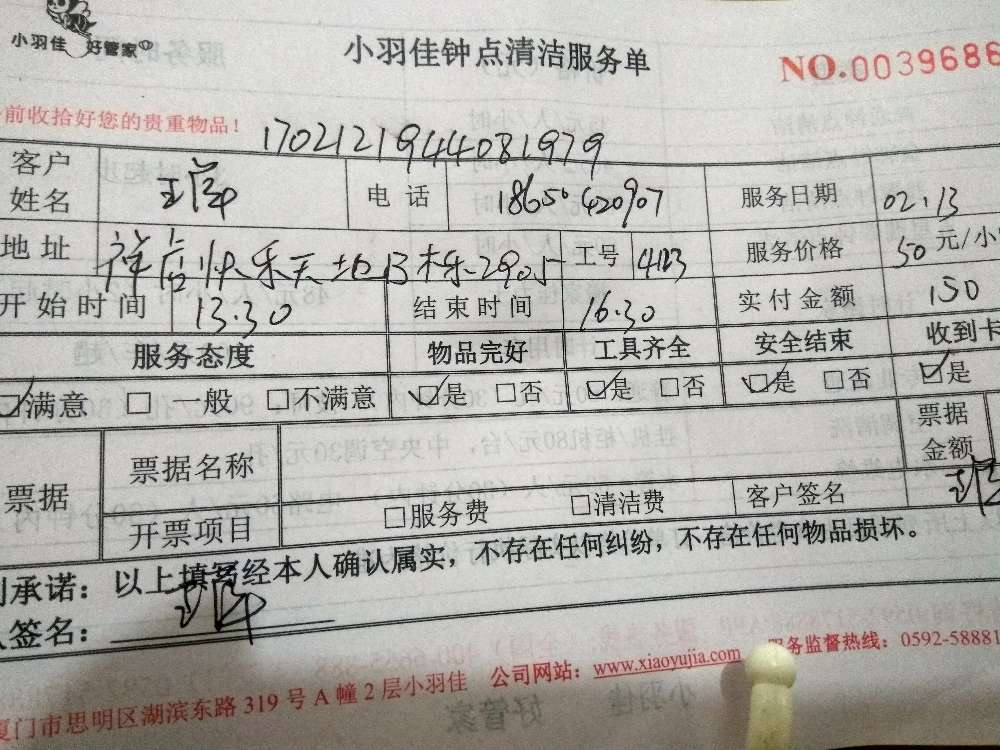 小羽佳 好管家
小羽佳钟点清洁服务单
NO.0039686
前收拾好您的贵重物品！
1702121944081979
客户姓名 电话 18650420907 服务日期 02.13
地址 祥店快乐天地B栋2905 工号 4123 服务价格 50元/小
开始时间 13.30 结束时间 16.30 实付金额 150
服务态度 物品完好 工具齐全 安全结束 收到卡
☑满意 □ 一般 □不满意 ☑是 □否 ☑是 □否 ☑是 □否 ☑是
票据 票据名称 票据金额
开票项目 □服务费 □清洁费 客户签名
承诺：以上填写经本人确认属实，不存在任何纠纷，不存在任何物品损坏。
签名：
厦门市思明区湖滨东路319号A幢2层小羽佳 公司网站：www.xiaoyujia.com 服务监督热线：0592-58881